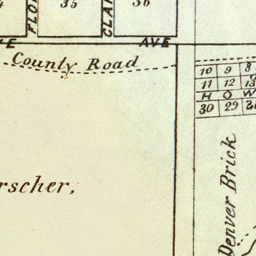 35
36
FLO
CLAR
AVE
County Road
10 9 8
11 12 13
HOW
30 29
rscher,
Denver Brick